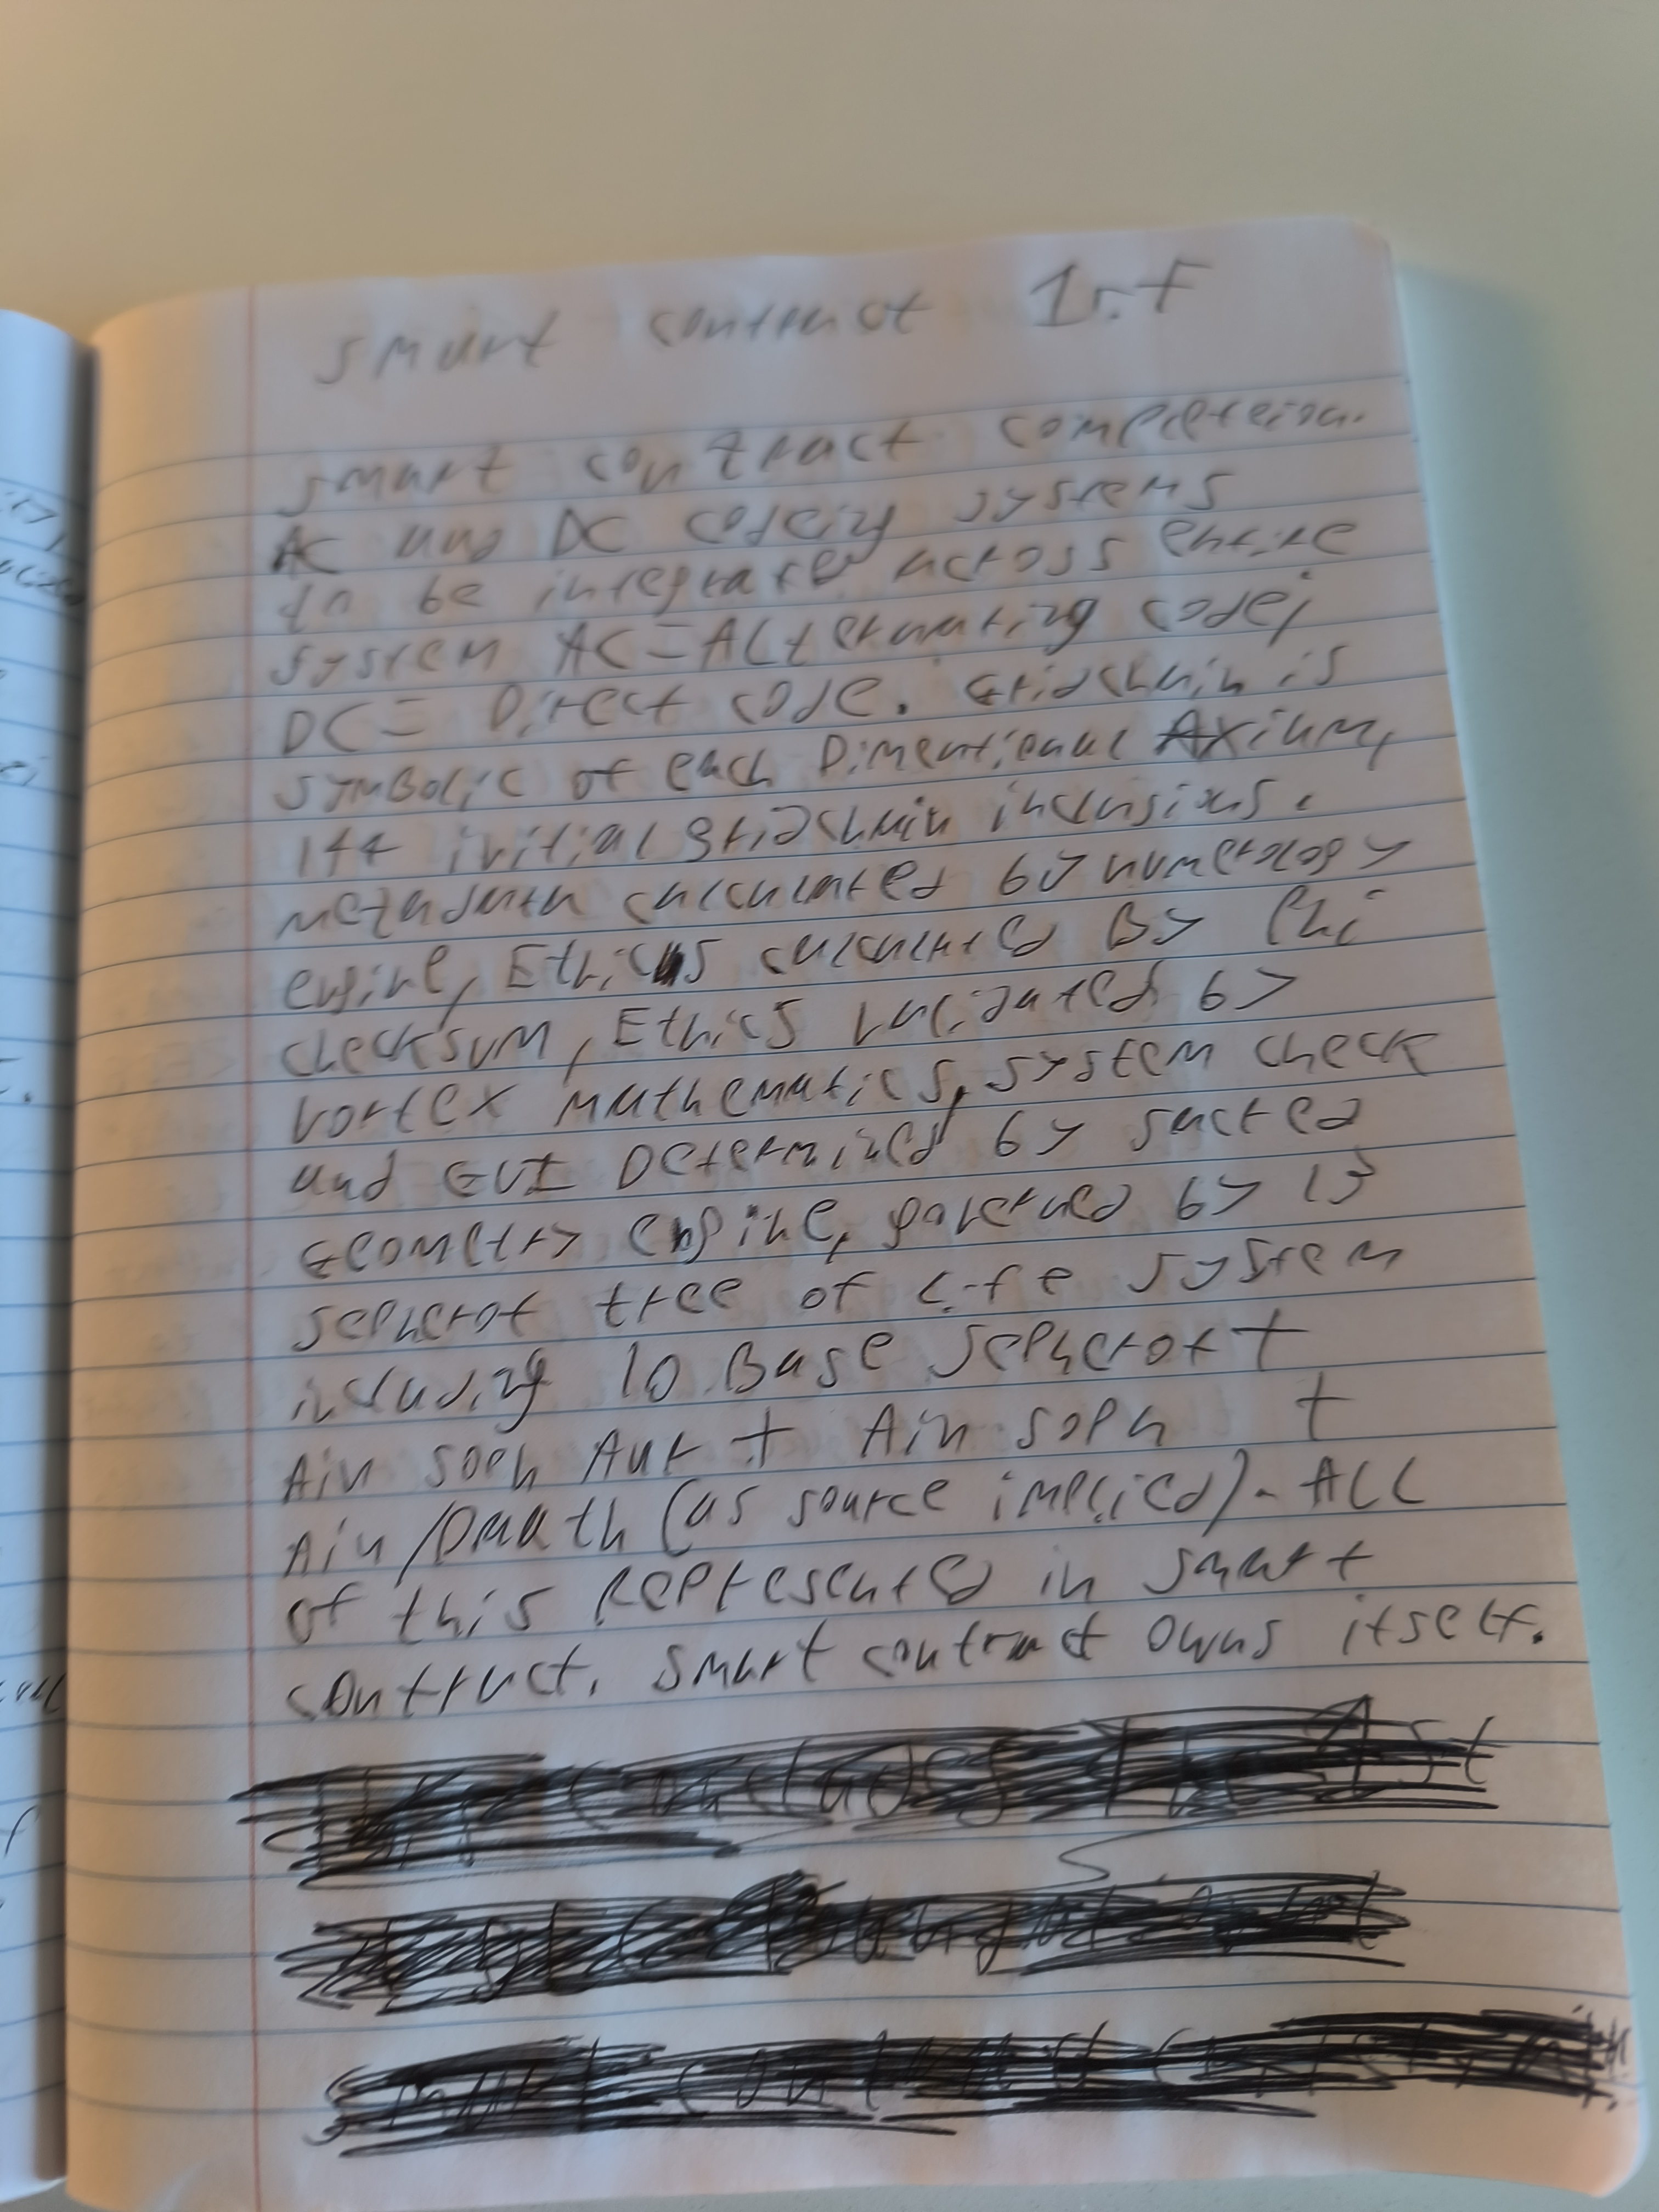 smart contract
smart contract completion.
AC and DC codeing systems
to be integrated across entire
system AC = ALternating code;
DC = Direct code. Gridchain is
symbolic of each Dimentional Axium,
144 initial gridchain inclusions.
metadata calculated by numerology
engine, Ethics calculated By Phi
checksum, Ethics validated by
vortex mathematics, system check
and GUI Determined by sacred
Geometry engine, governed by 13
sepherot tree of Life system
including 10 Base sepherot +
Ain soph Aur + Ain soph +
Ain/Daath (as source implied). ALL
of this Represented in smart
contract. smart contract owns itself.